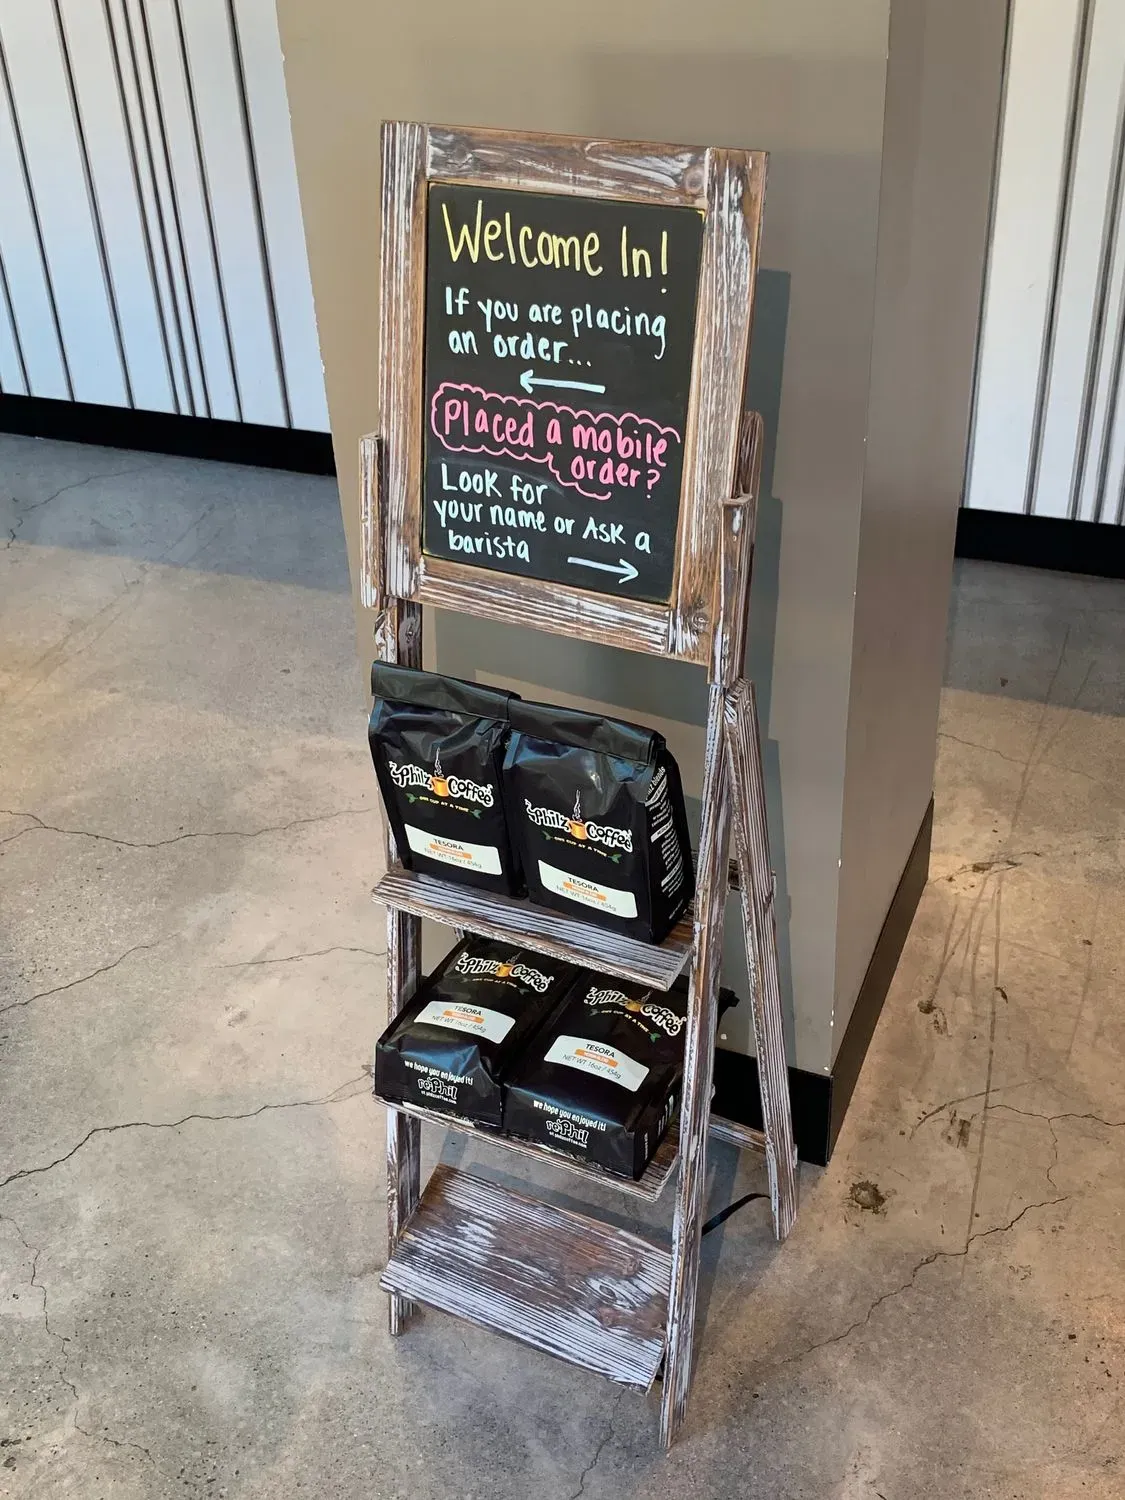 Welcome In!
If you are placing
an order...
Placed a mobile
order?
Look for
your name or Ask a
barista
Philz Coffee
ONE CUP AT A TIME
TESORA
NET WT 16oz / 454g
Philz Coffee
ONE CUP AT A TIME
TESORA
NET WT 16oz / 454g
Philz Coffee
ONE CUP AT A TIME
TESORA
NET WT 16oz / 454g
we hope you enjoyed it!
rePhil
at philzcoffee.com
Philz Coffee
ONE CUP AT A TIME
TESORA
NET WT 16oz / 454g
we hope you enjoyed it!
rePhil
at philzcoffee.com